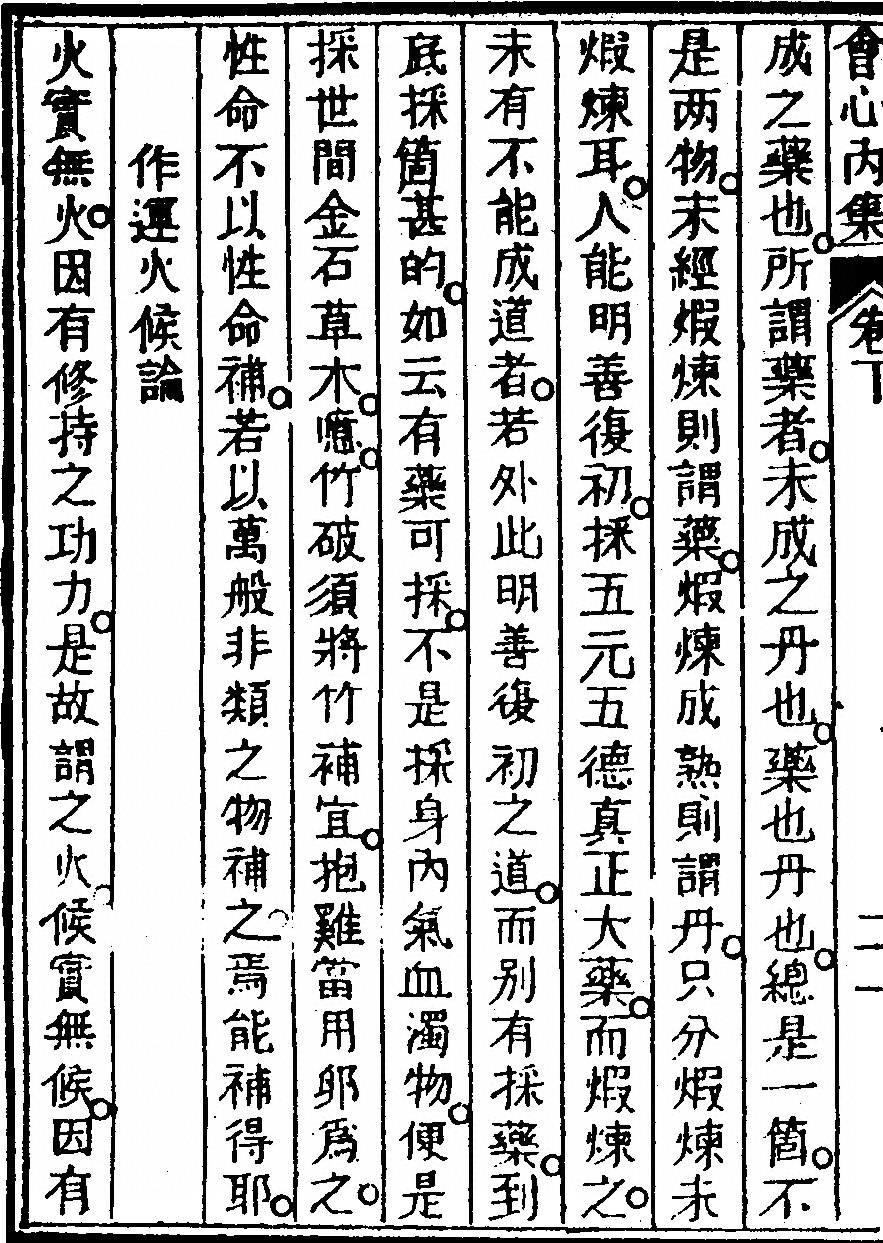 會心內集 卷下 二一
成之藥也。所謂藥者。未成之丹也。藥也丹也。總是一箇。不
是两物。未經煅煉則謂藥。煅煉成熟則謂丹。只分煅煉未
煅煉耳。人能明善復初。採五元五德真正大藥。而煅煉之。
未有不能成道者。若外此明善復初之道。而别有採藥。到
底採箇甚的。如云有藥可採。不是採身內氣血濁物。便是
採世間金石草木。噫。竹破須將竹補宜。抱雞當用卵爲之。
性命不以性命補。若以萬般非類之物補之。焉能補得耶。
作運火候論
火實無火。因有修持之功力。是故謂之火。候實無候。因有